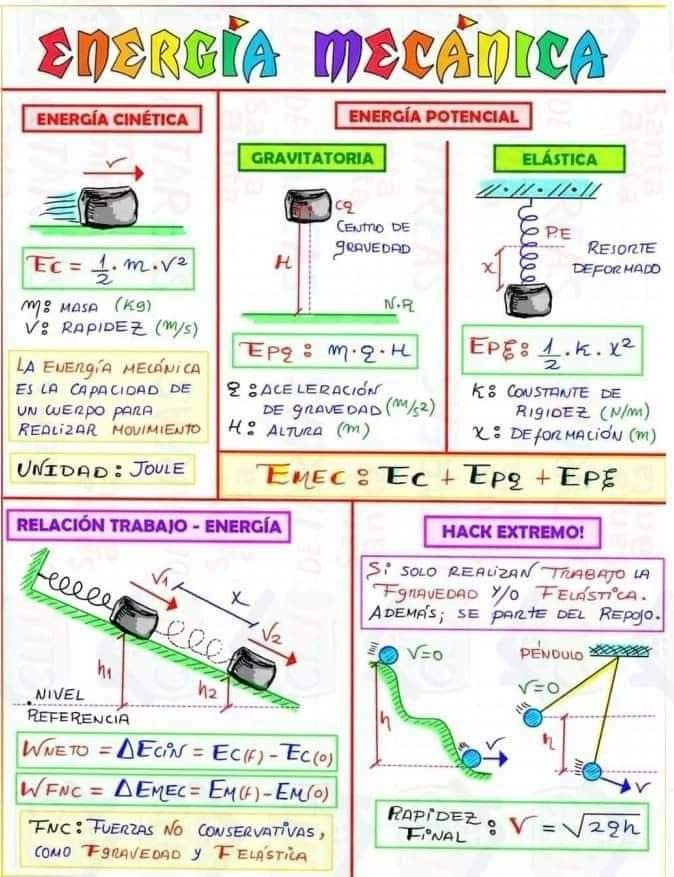 ENERGÍA MECÁNICA
ENERGÍA CINÉTICA
V
EC = 1/2 · m · V²
m: MASA (Kg)
V: RAPIDEZ (m/s)
LA ENERGÍA MECÁNICA
ES LA CAPACIDAD DE
UN CUERPO PARA
REALIZAR MOVIMIENTO
UNIDAD: JOULE
ENERGÍA POTENCIAL
GRAVITATORIA
CG
CENTRO DE
GRAVEDAD
H
N·R
EPg: m·g·H
g: ACELERACIÓN
DE GRAVEDAD (m/s2)
H: ALTURA (m)
ELÁSTICA
P.E
X
RESORTE
DEFORMADO
EPE: 1/2 · K · X²
K: CONSTANTE DE
RIGIDEZ (N/m)
X: DEFORMACIÓN (m)
EMEC: EC + EPg + EPE
RELACIÓN TRABAJO - ENERGÍA
V1
X
V2
h1
h2
NIVEL
REFERENCIA
WNETO = ΔECIN = EC(F) - EC(0)
WFNC = ΔEMEC = EM(F) - EM(0)
FNC: FUERZAS NO CONSERVATIVAS,
COMO FGRAVEDAD Y FELÁSTICA
HACK EXTREMO!
Si SOLO REALIZAN TRABAJO LA
FGRAVEDAD Y/O FELÁSTICA.
ADEMÁS; SE PARTE DEL REPOSO.
V=0
h
V
PÉNDULO
V=0
h
V
RAPIDEZ
FINAL : V = √2gh